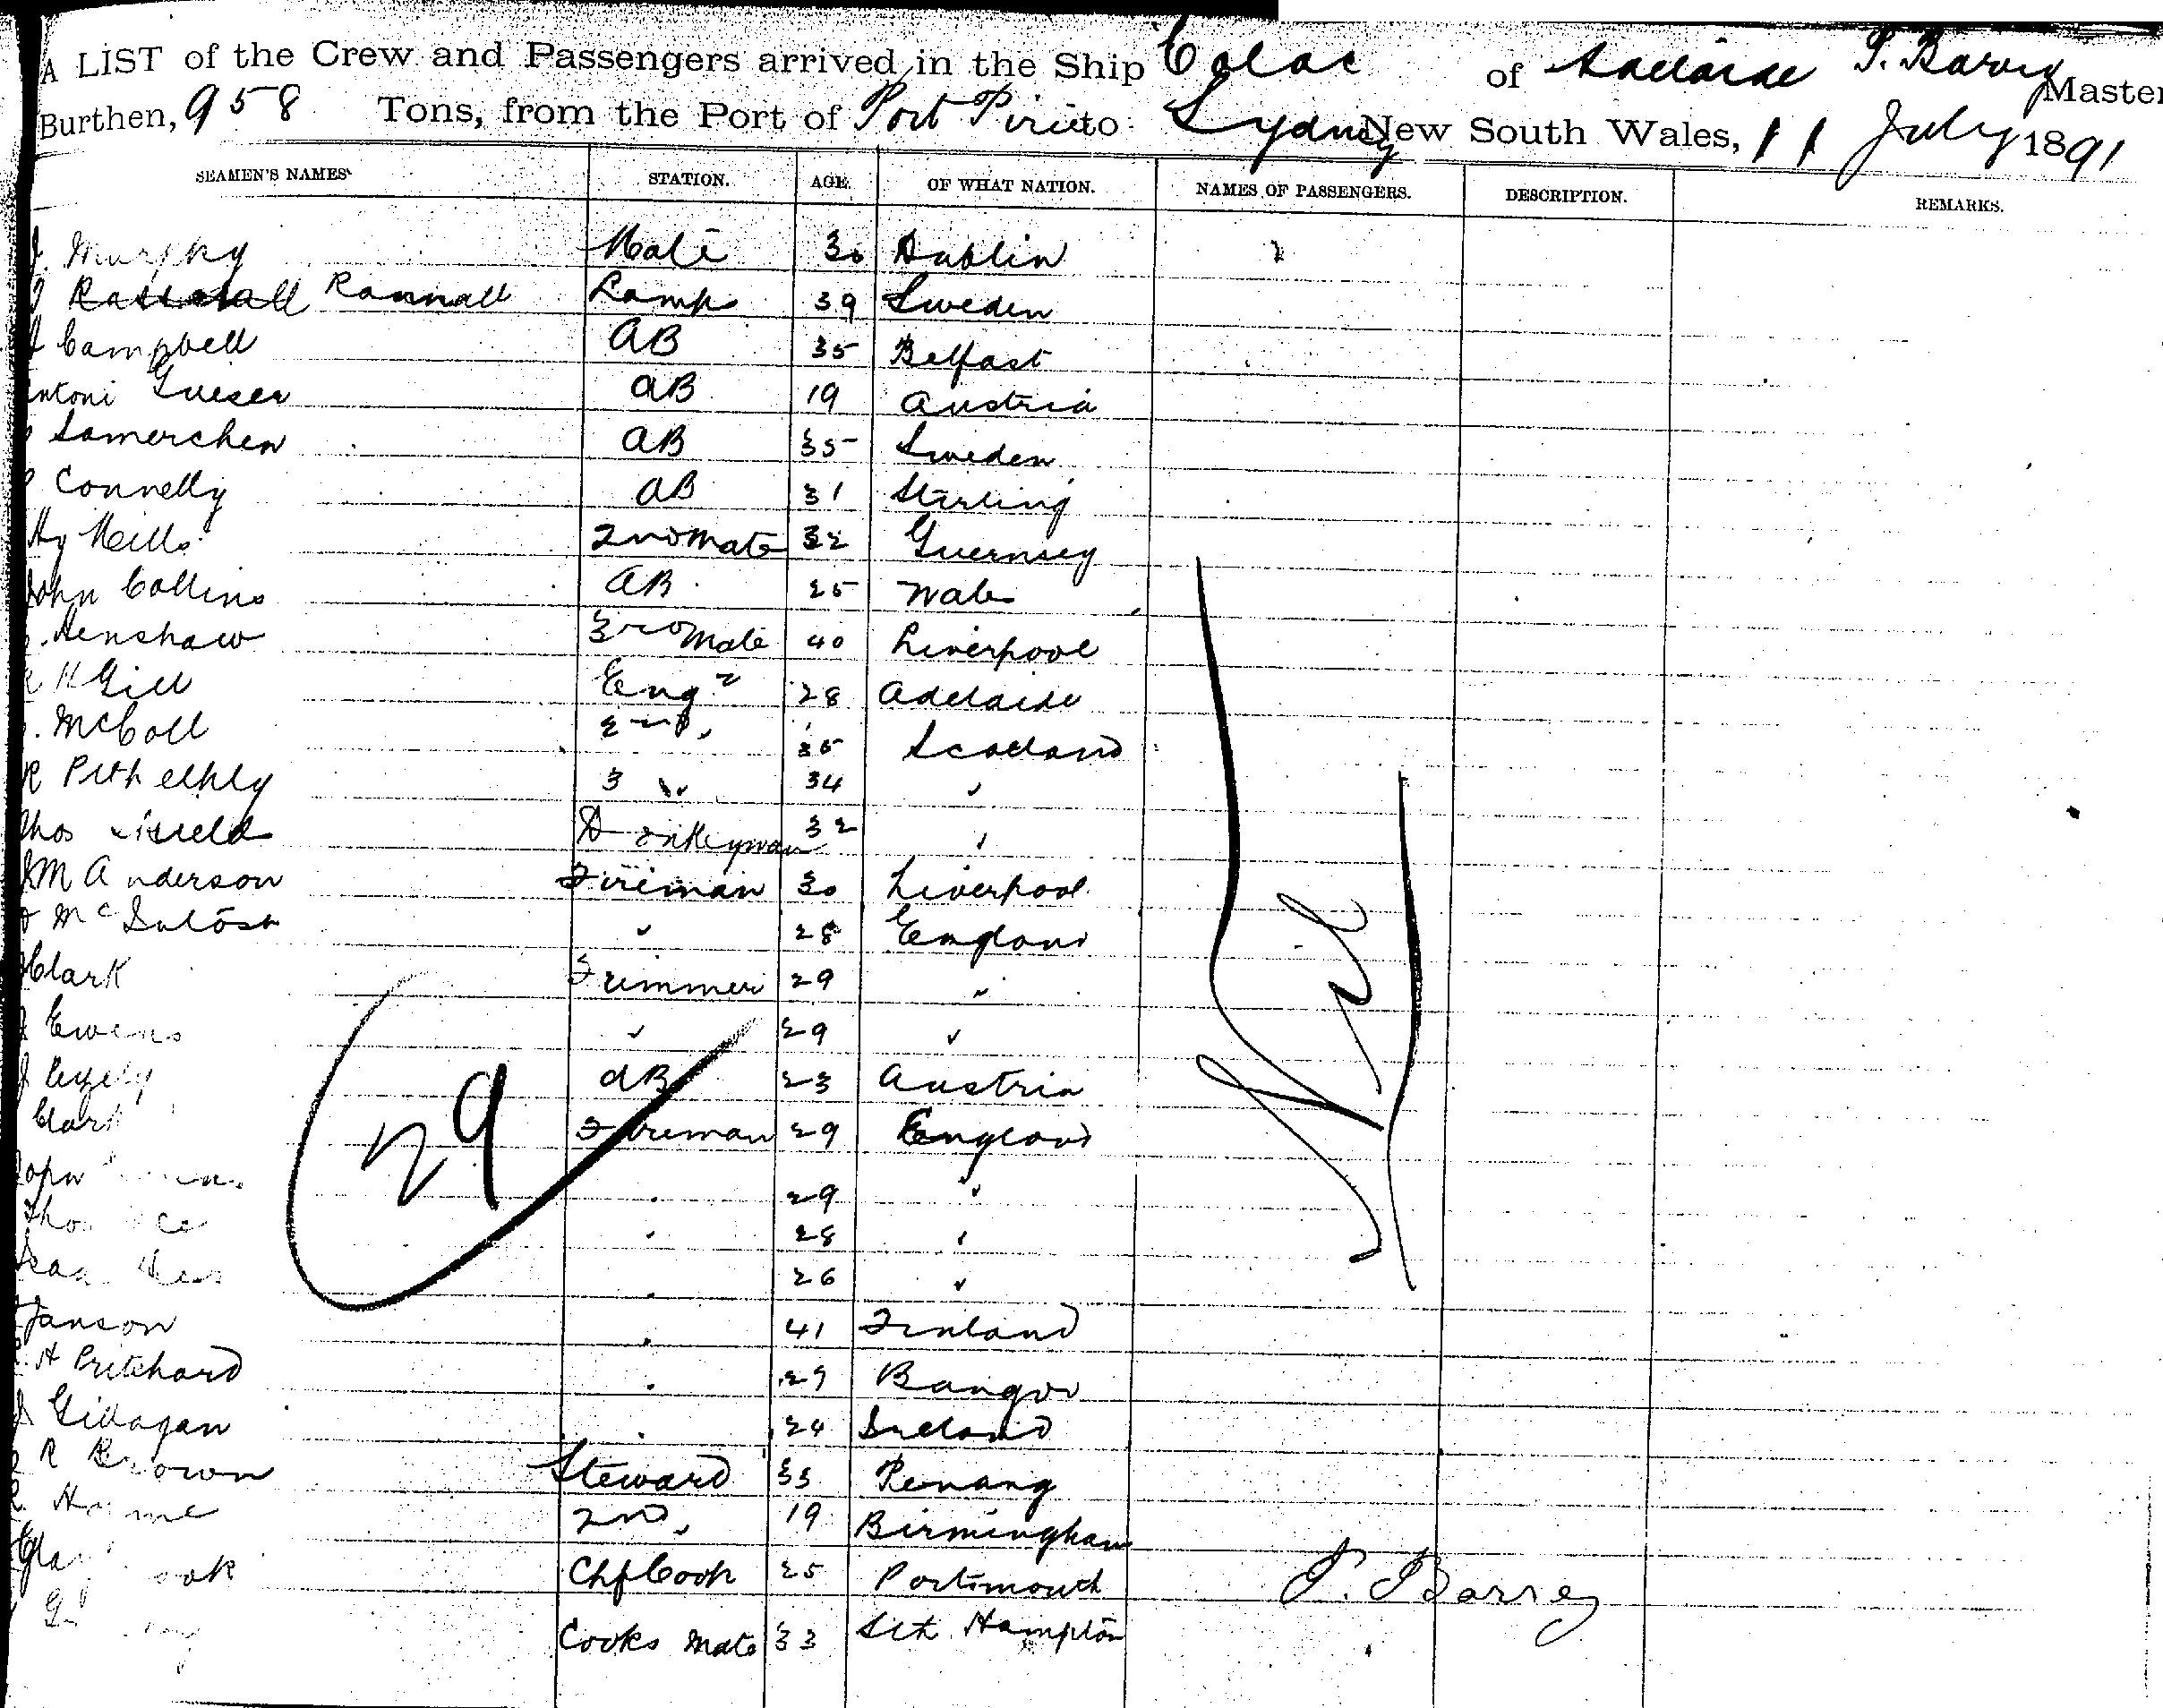 A LIST of the Crew and Passengers arrived in the Ship Colac of Adelaide Master
Burthen, 958 Tons, from the Port of Port Pirie to Sydney New South Wales, 11 July 1891
SEAMEN'S NAMES STATION. AGE. OF WHAT NATION. NAMES OF PASSENGERS. DESCRIPTION. REMARKS.
Murphy Mate 30 Dublin
Rannall Lamps 39 Sweden
Campbell AB 35 Belfast
AB 19 Austria
Samerchen AB 35 Sweden
Connelly AB 31 Stirling
Hy Mills 2nd Mate 32 Guernsey
John Collins AB 25 Wales
Henshaw 3rd Mate 40 Liverpool
H Gill Engr 28 Adelaide
McColl 2nd " 35 Scotland
R 3 " 34 "
Thos Donkeyman 32 "
M Anderson Fireman 30 Liverpool
McIntosh " 28 England
Clark Trimmer 29 "
Ewens " 29 "
AB 23 Austria
Clark Fireman 29 England
John " 29 "
Thos " 28 "
" 26 "
Janson " 41 Finland
H Pritchard " 29 Bangor
Gillagan " 24 Ireland
R Brown Steward 33 Penang
2nd " 19 Birmingham
Chf Cook 25 Portsmouth
Cooks Mate 33 Sth Hampton
29
Nil
P. Barrey